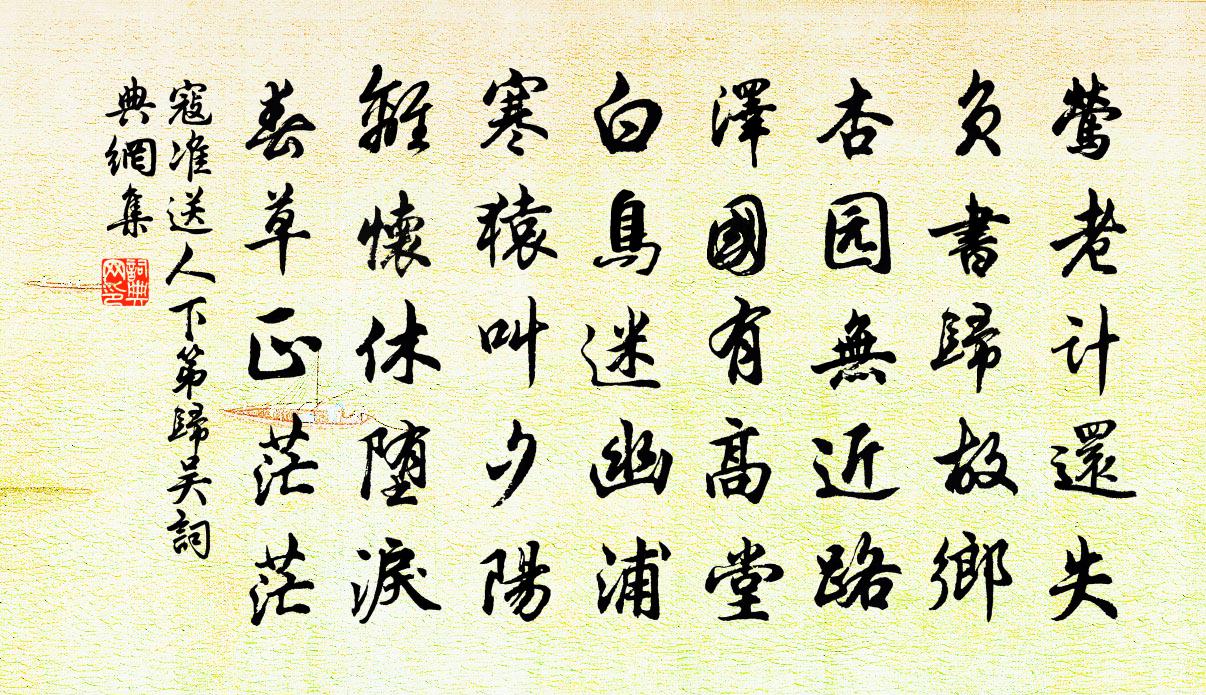 鶯老计還失
負書歸故鄉
杏园無近路
澤國有高堂
白鳥迷幽浦
寒猿叫夕陽
離懷休堕淚
春草正茫茫
寇准送人下第歸吴詞
典網集
詞典网印